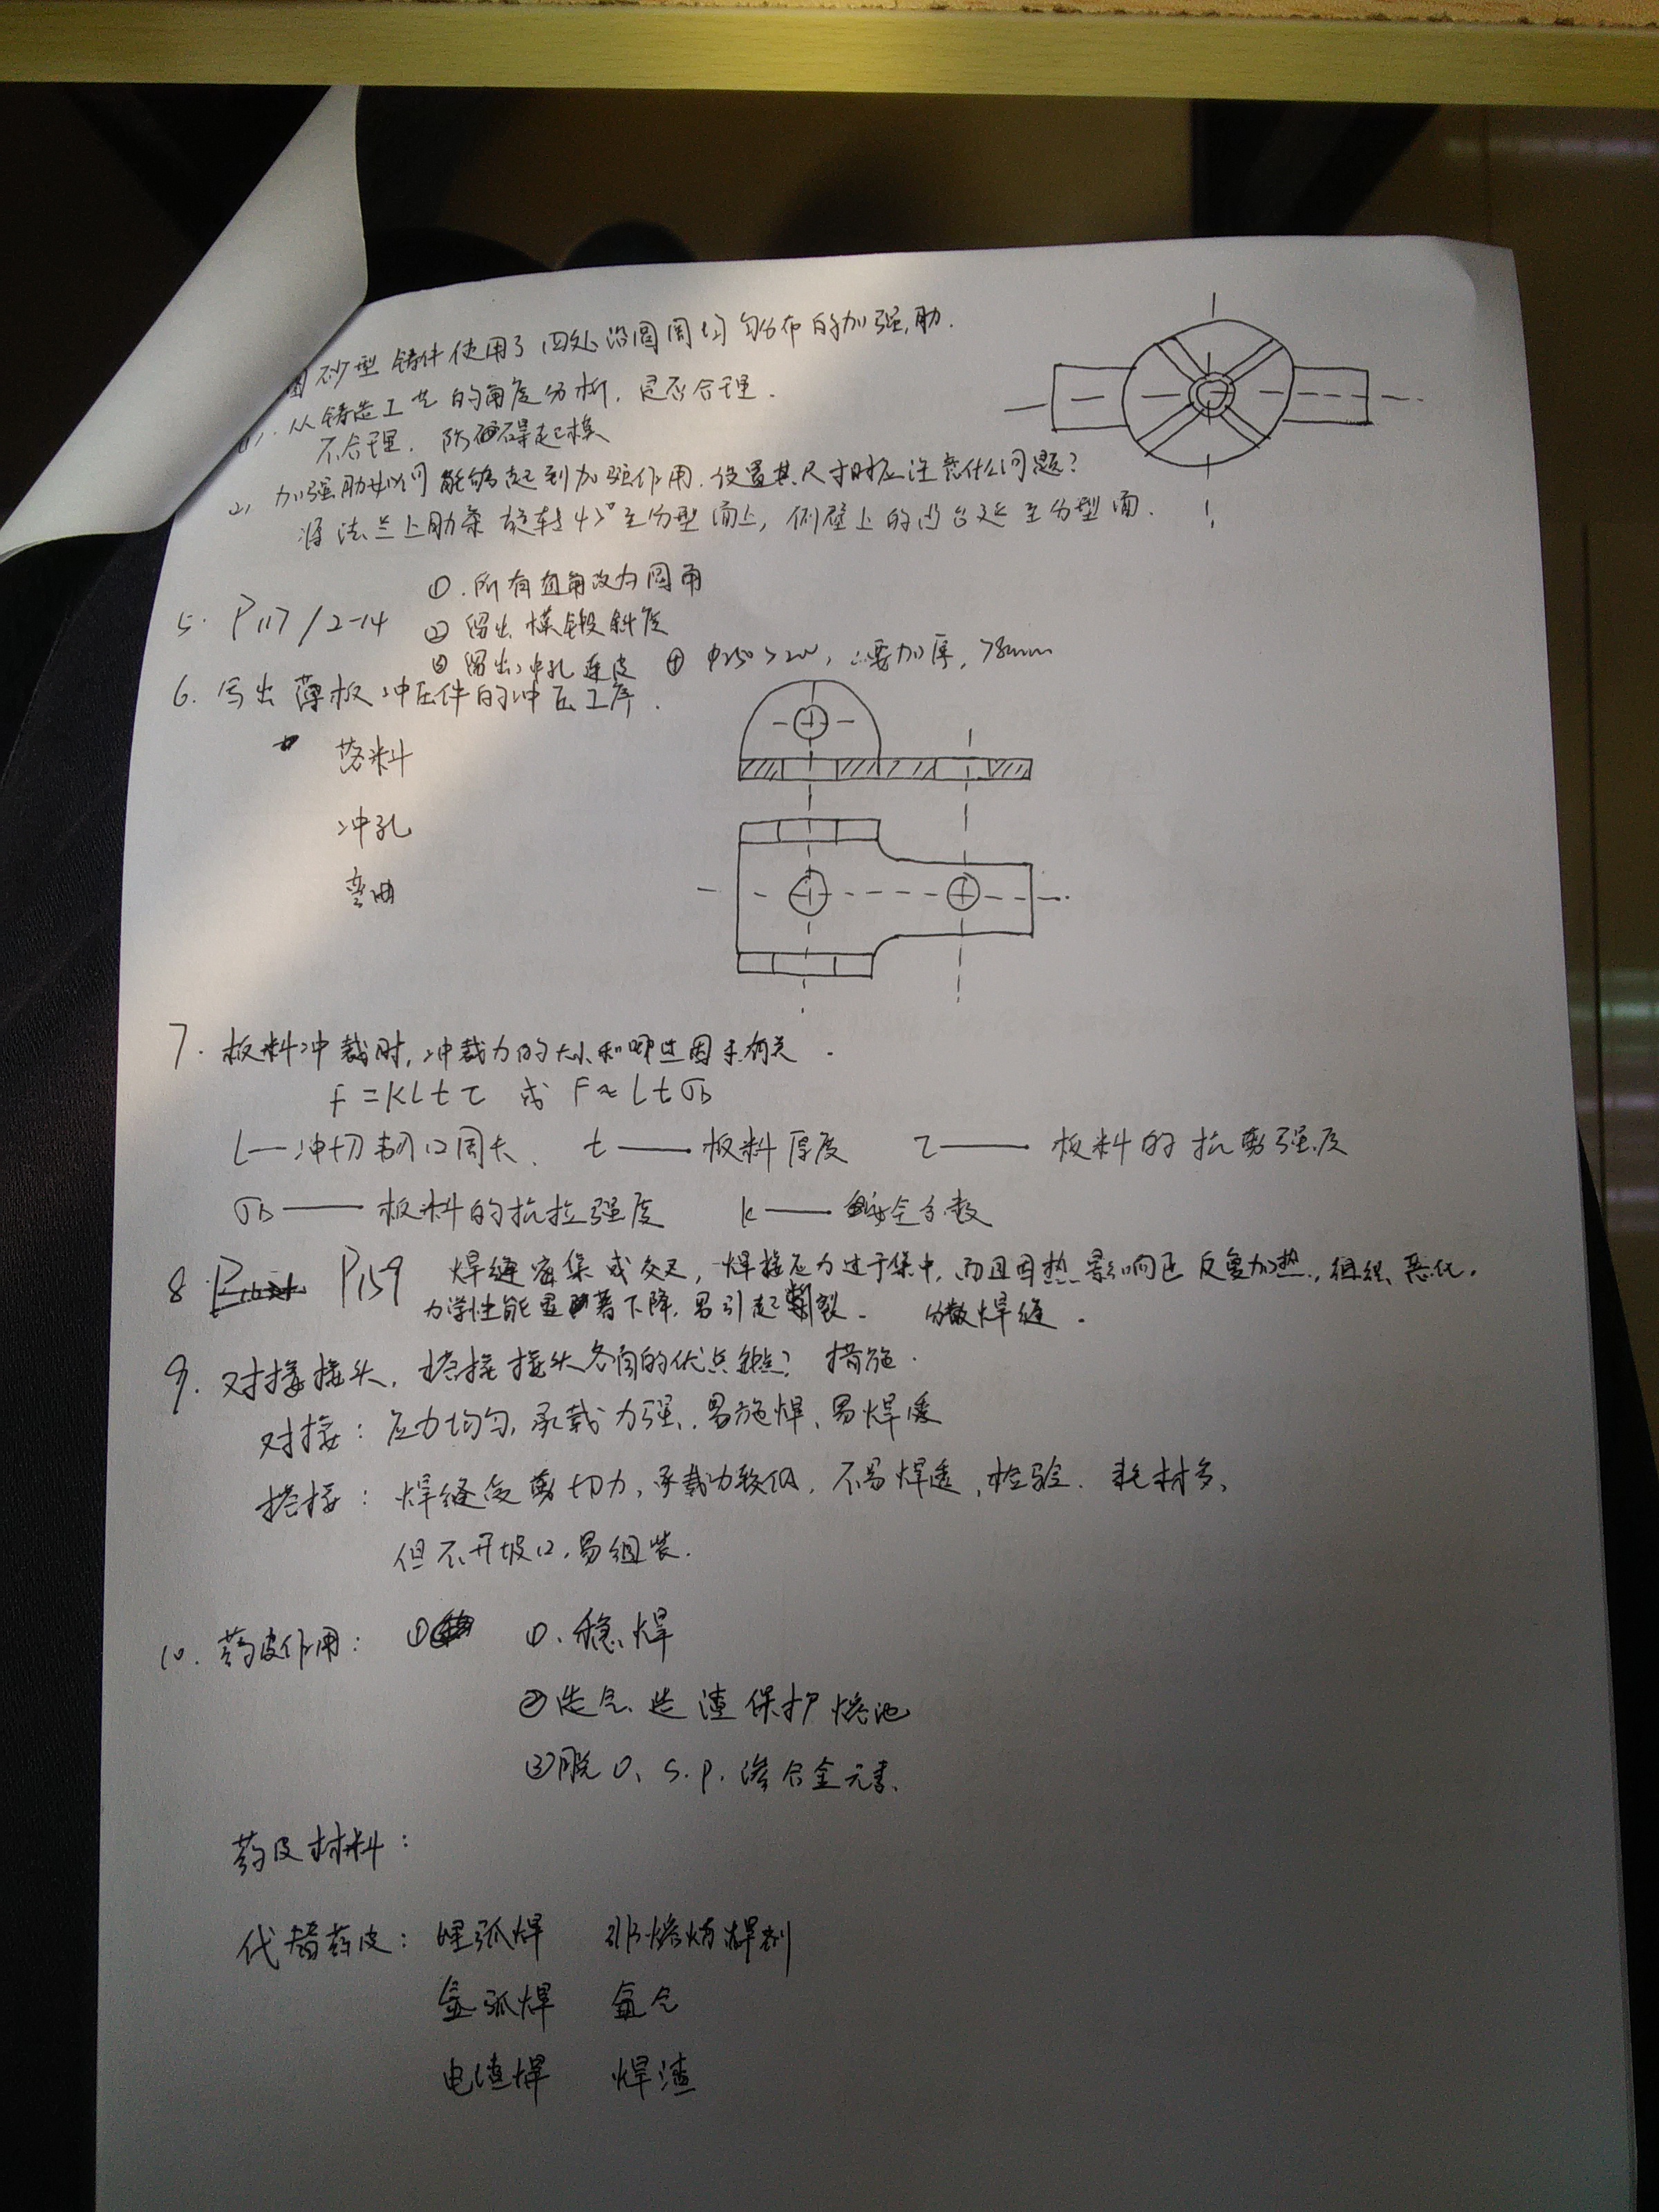 图砂型铸件使用了四处沿圆周均匀分布的加强肋.
(1). 从铸造工艺的角度分析, 是否合理.
不合理. 防碍起模
2) 加强肋如何能够起到加强作用. 设置其尺寸时应注意什么问题?
将法兰上肋条旋转45°至分型面上, 侧壁上的凸台延至分型面.
①. 所有直角改为圆角
5. P117/2-14 ② 留出模锻斜度
③ 留出冲孔连皮 ④ φ250>200, ∴要加厚, >8mm
6. 写出薄板冲压件的冲压工序.
落料
冲孔
弯曲
7. 板料冲裁时, 冲裁力的大小和哪些因素有关.
F=KLtτ 或 F≈Ltσb
L—冲切刃口周长. t——板料厚度 τ——板料的抗剪强度
σb——板料的抗拉强度 k——安全系数
8. P159 焊缝密集或交叉, 焊接应力过于集中, 而且因热影响区反复加热, 组织恶化.
力学性能显著下降, 易引起裂. 分散焊缝.
9. 对接接头, 搭接接头各自的优点缺点? 措施.
对接: 应力均匀, 承载力强, 易施焊、易焊透
搭接: 焊缝受剪切力, 承载力较低, 不易焊透、检验. 耗材多,
但不开坡口, 易组装.
10. 药皮作用: ① ①. 稳焊
②造气、造渣保护熔池
③脱O、S.P. 渗合金元素.
药皮材料:
代替药皮: 埋弧焊 非熔炼焊剂
氩弧焊 氩气
电渣焊 焊渣